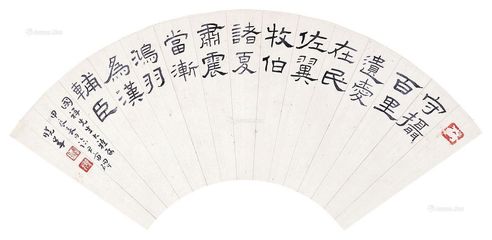 守攝
百里
遺愛
在民
佐翼
牧伯
諸夏
肅震
當漸
鴻羽
為漢
輔臣